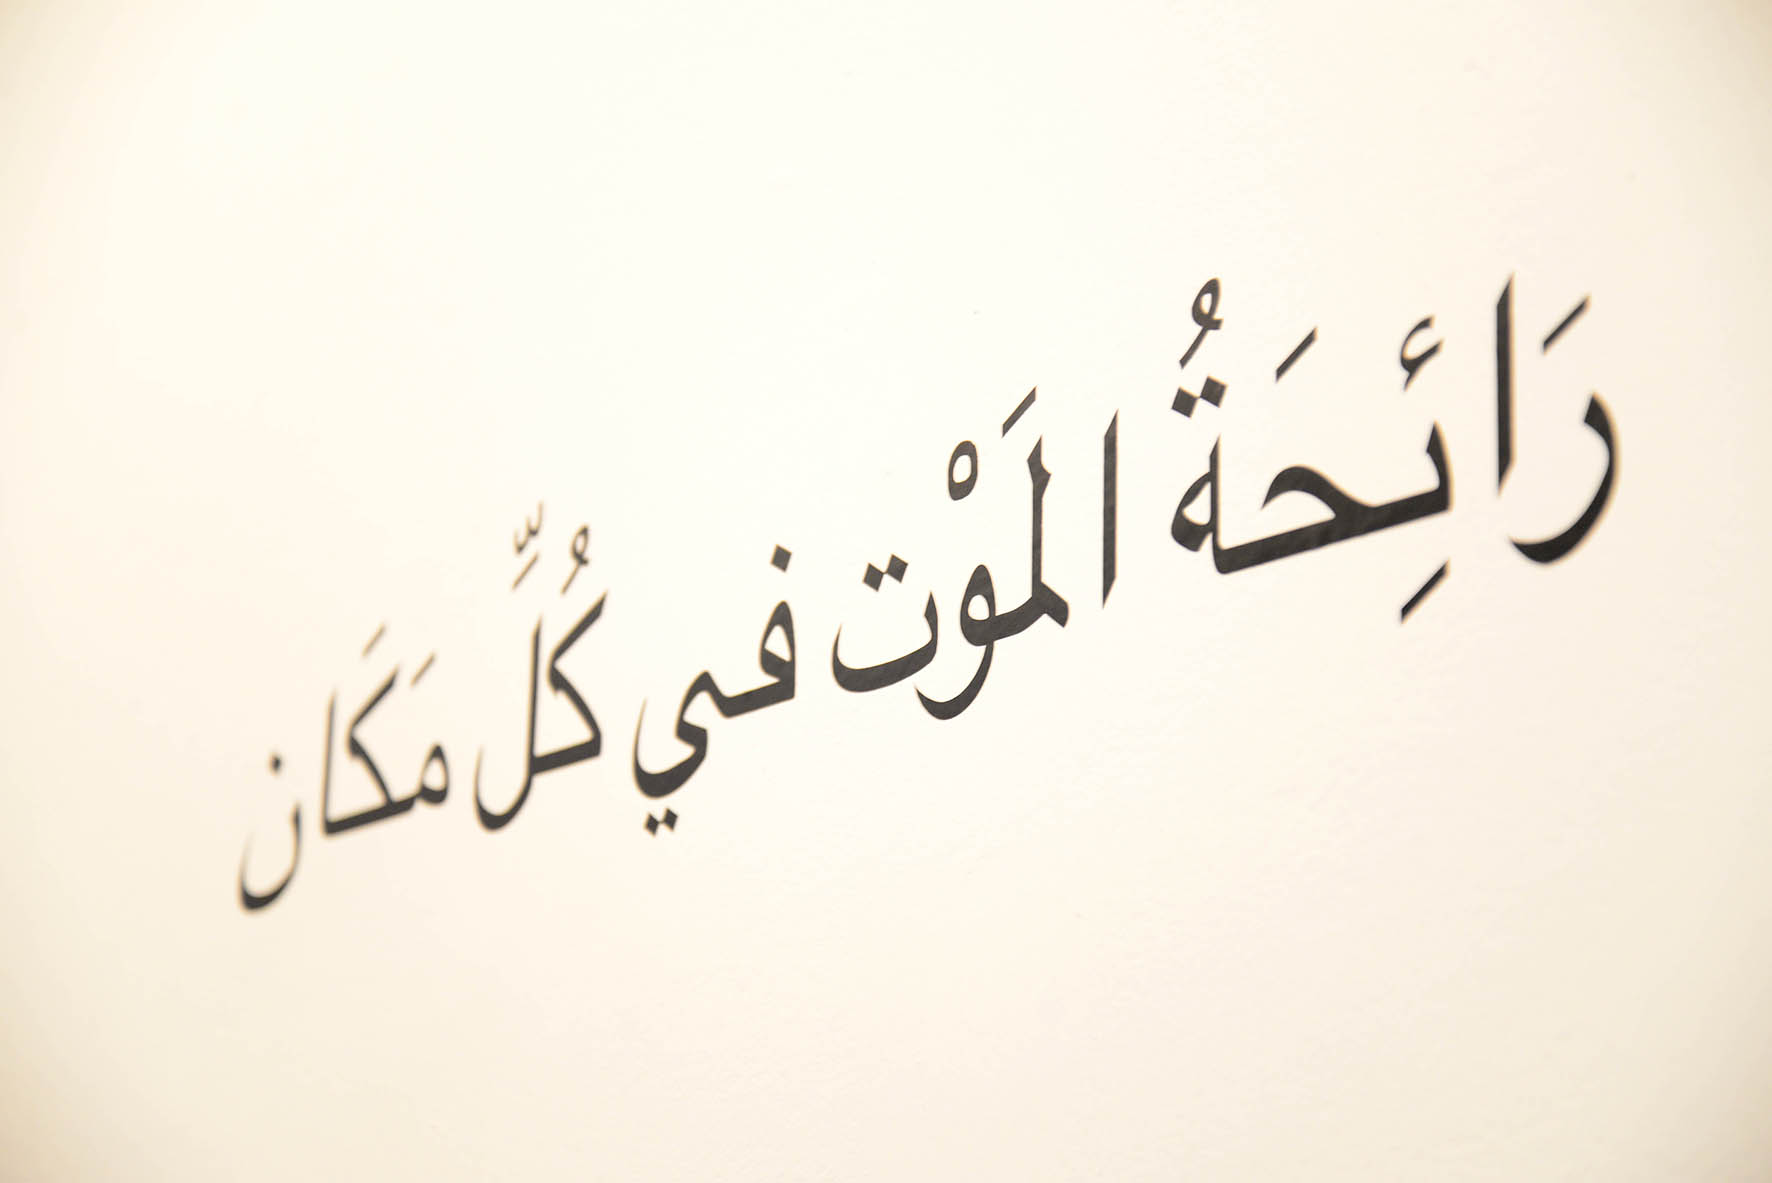 رَائِحَةُ المَوْت في كُلِّ مَكَان